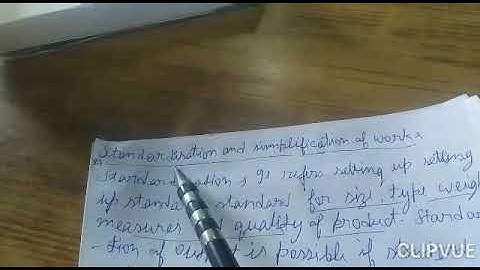 Standardisation and simplification of work
Standardisation : It refers setting up setting
up standard standard for size, type weigh
measures quality of product. Standar
-tion of output is possible if
CLIPVUE